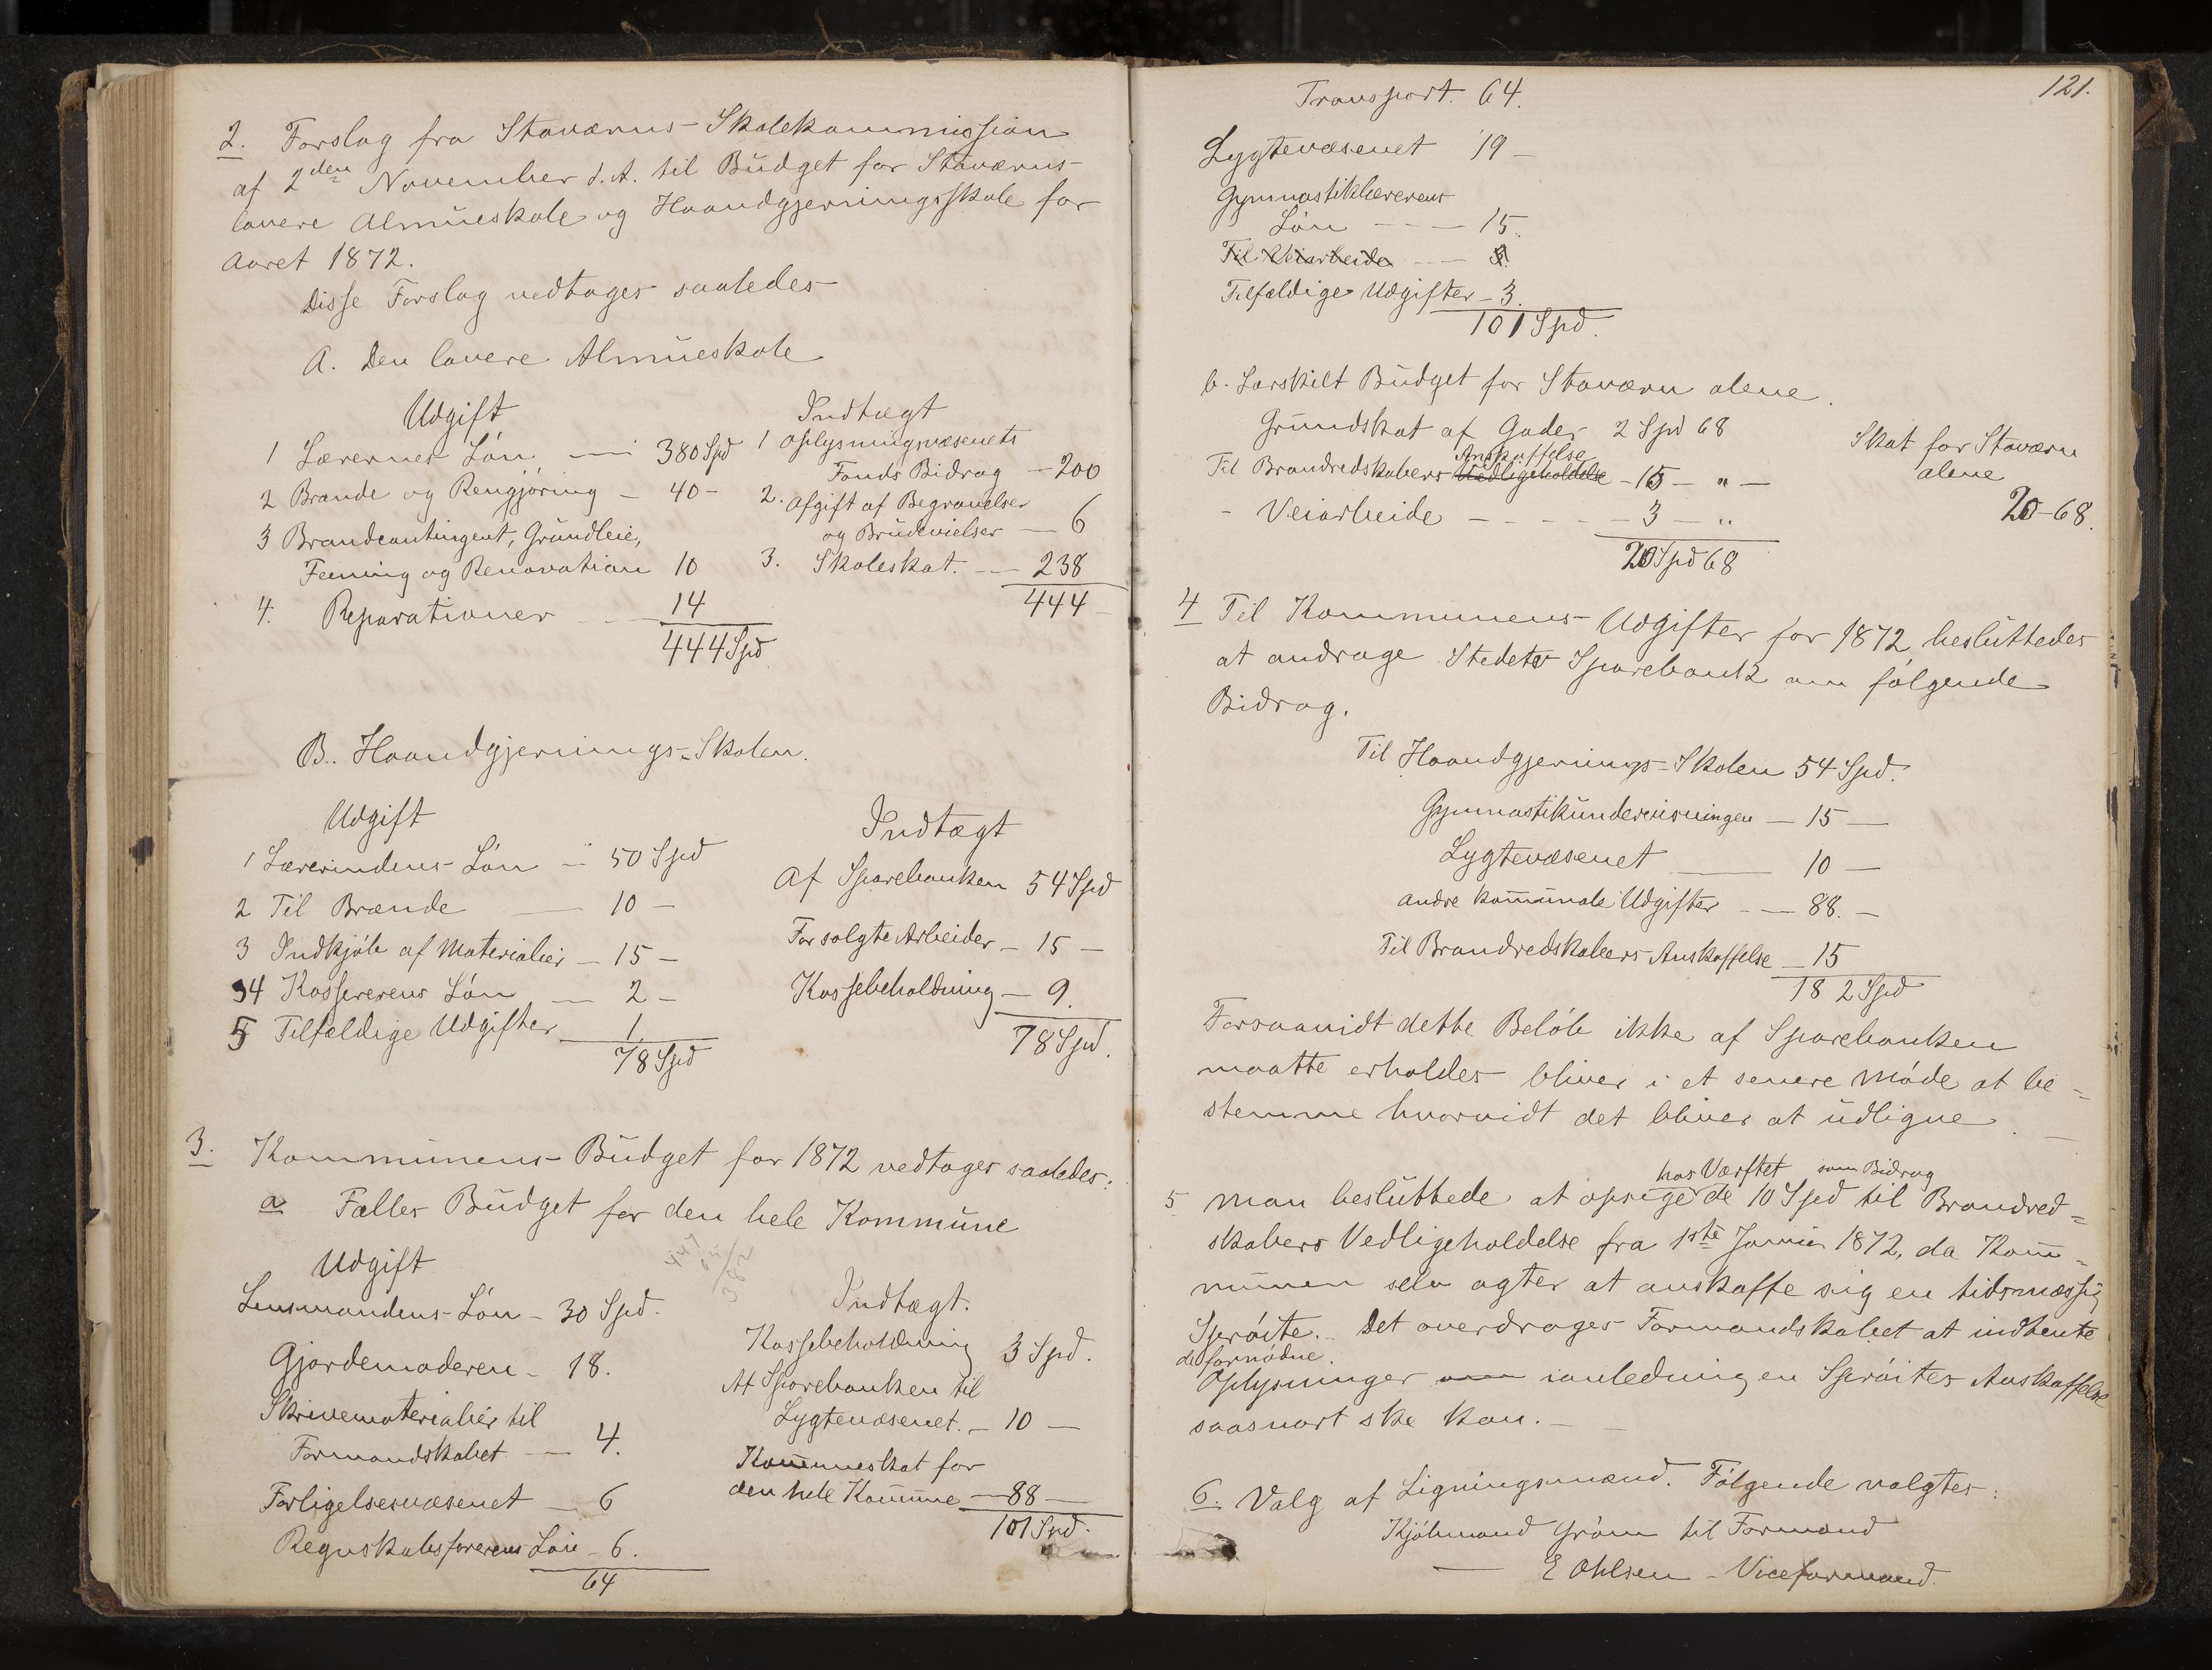 2. Forslag fra Staværns Skolekommission
af 2den November d.A. til Budget for Staværns
lavere Almueskole og Haandgjerningsskole for
Aaret 1872.
Disse Forslag vedtages saaledes
A. Den lavere Almueskole
Udgift
1 Lærernes Løn — 380 Spd
2 Brænde og Rengjøring — 40 -
3 Brandcontingent, Grundleie,
Feining og Renovation 10
4. Reparationer — 14
444 Spd
Indtægt
1 Oplysningsvæsenets
Fonds Bidrag — 200
2. Afgift af Begravelser
og Brudevielser — 6
3. Skoleskat. — 238
444
B. Haandgjernings-Skolen.
Udgift
1 Lærerindens Løn — 50 Spd
2 Til Brænde — 10 -
3 Indkjøb af Materialier — 15 -
4 Kassererens Løn — 2 -
5 Tilfældige Udgifter 1
78 Spd
Indtægt
Af Sparebanken 54 Spd
For solgte Arbeider — 15 —
Kassebeholdning — 9.
78 Spd.
3. Kommunens Budget for 1872 vedtages saaledes:
a Fælles Budget for den hele Kommune
Udgift
Lensmandens Løn - 30 Spd.
Gjordemoderen - 18.
Skrivematerialier til
Formandskabet — 4.
Forligelsesvæsenet — 6
Regnskabsførerens Løn - 6.
64
Indtægt.
Kassebeholdning 3 Spd.
Af Sparebanken til
Lygtevæsenet. — 10 —
Kommuneskat for
den hele Kommune — 88 —
101 Spd.
121.
Transport. 64.
Lygtevæsenet 19 —
Gymnastiklærerens
Løn — 15.
Til Veiarbeide
Tilfældige Udgifter - 3.
101 Spd.
b. Særskilt Budget for Staværn alene.
Grundskat af Gader 2 Spd 68
Anskaffelse
Til Brandredskabers Vedligeholdelse - 15 — " —
- Veiarbeide — 3 — "
20 Spd 68
Skat for Staværn
alene
20-68.
4 Til Kommunens Udgifter for 1872 besluttedes
at andrage Stedets Sparebank om følgende
Bidrag.
Til Haandgjernings-Skolen 54 Spd.
Gymnastikundervisningen — 15 —
Lygtevæsenet — 10 —
Andre kommunale Udgifter — 88. —
Til Brandredskabers Anskaffelse — 15
182 Spd
Forsaavidt dette Beløb ikke af Sparebanken
maatte erholdes bliver i et senere Møde at be=
stemme hvorvidt det bliver at udligne. —
hos Værftet som Bidrag
5 Man besluttede at opsige de 10 Spd til Brandred=
skabers Vedligeholdelse fra 1ste Januar 1872, da Kom=
munen selv agter at anskaffe sig en tidsmæssig
Sprøite. - Det overdrages Formandskabet at indhente
de fornødne
Oplysninger om ianledning en Sprøites Anskaffelse
saasnart ske kan. —
6. Valg af Ligningsmænd. Følgende valgtes:
Kjøbmand Grøm til Formand
— E Ohlsen - Viceformand.